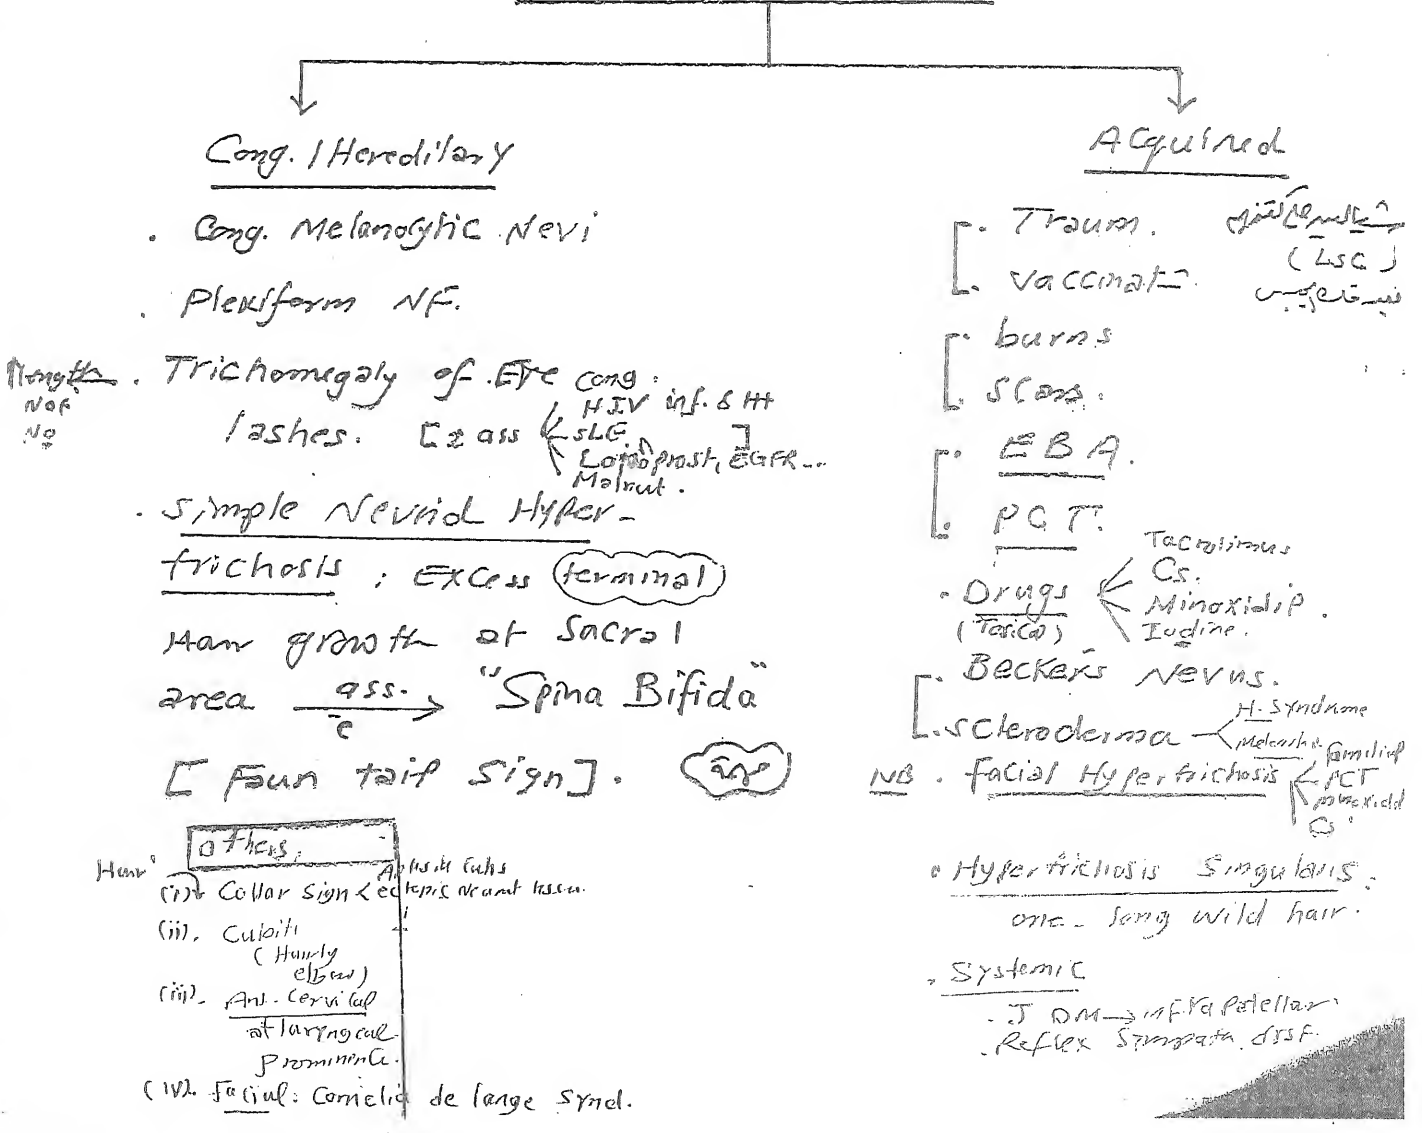 Cong. / Hereditary
. Cong. Melanocytic Nevi
. Plexiform NF.
. Trichomegaly of Eye
lashes. [± ass
Cong.
HIV inf.
SLE
EGFR...
Malnut.
]
↑length
Not
No
. Simple Nevoid Hyper-
trichosis : Excess terminal
Hair growth at Sacral
area ass. c̄ → "Spina Bifida"
[Faun tail Sign].
others.
Hair
(i) Collar Sign < ectopic Neural tissu.
Aplasia Cutis
(ii). Cubiti
(Hairly
elbow)
(iii). Ant. Cervical
at laryngeal
prominence.
(iv). Facial: Cornelia de lange Synd.
Acquired
. Traum.
(LSC)
. Vaccinat
. burns
. Scars.
. EBA.
. PCT.
. Drugs
(Topical)
Tacrolimus
Cs.
Minoxidil.
Iodine.
. Becker's Nevus.
. Scleroderma
H. Syndrome
NB . Facial Hypertrichosis
Familial
PCT
minoxidil
Cs
. Hypertrichosis Singularis.
one long wild hair.
. Systemic
. J DM → infrapatellar.
. Reflex Sympath. dysf.